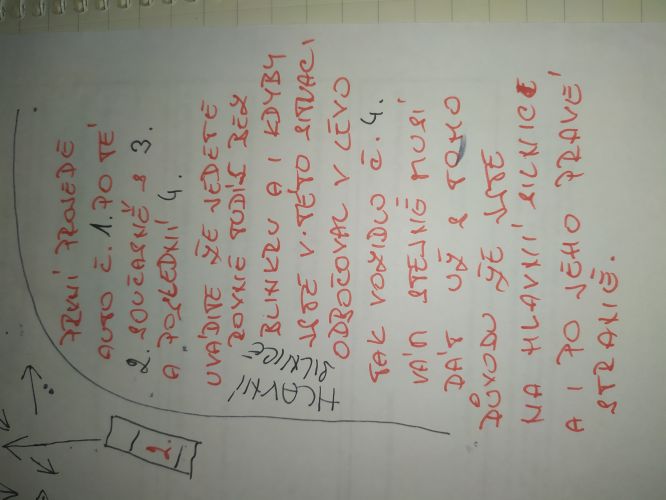 PRVNÍ PROJEDE
AUTO Č. 1. PO TÉ
2. SOUČASNĚ S 3.
A POSLEDNÍ 4.
UVÁDÍTE ŽE JEDETE
ROVNĚ TUDÍŽ BEZ
BLINKRU A I KDYBY
JSTE V TÉTO SITUACI
ODBOČOVAL V LÉVO
TAK VOZIDLO Č. 4.
VÁM STEJNĚ MUSÍ
DÁT UŽ S TOHO
DŮVODU ŽE JSTE
NA HLAVNÍ SILNICE
A I PO JÉHO PRAVÉ
STRANĚ.
HLAVNÍ
SILNICE
2.